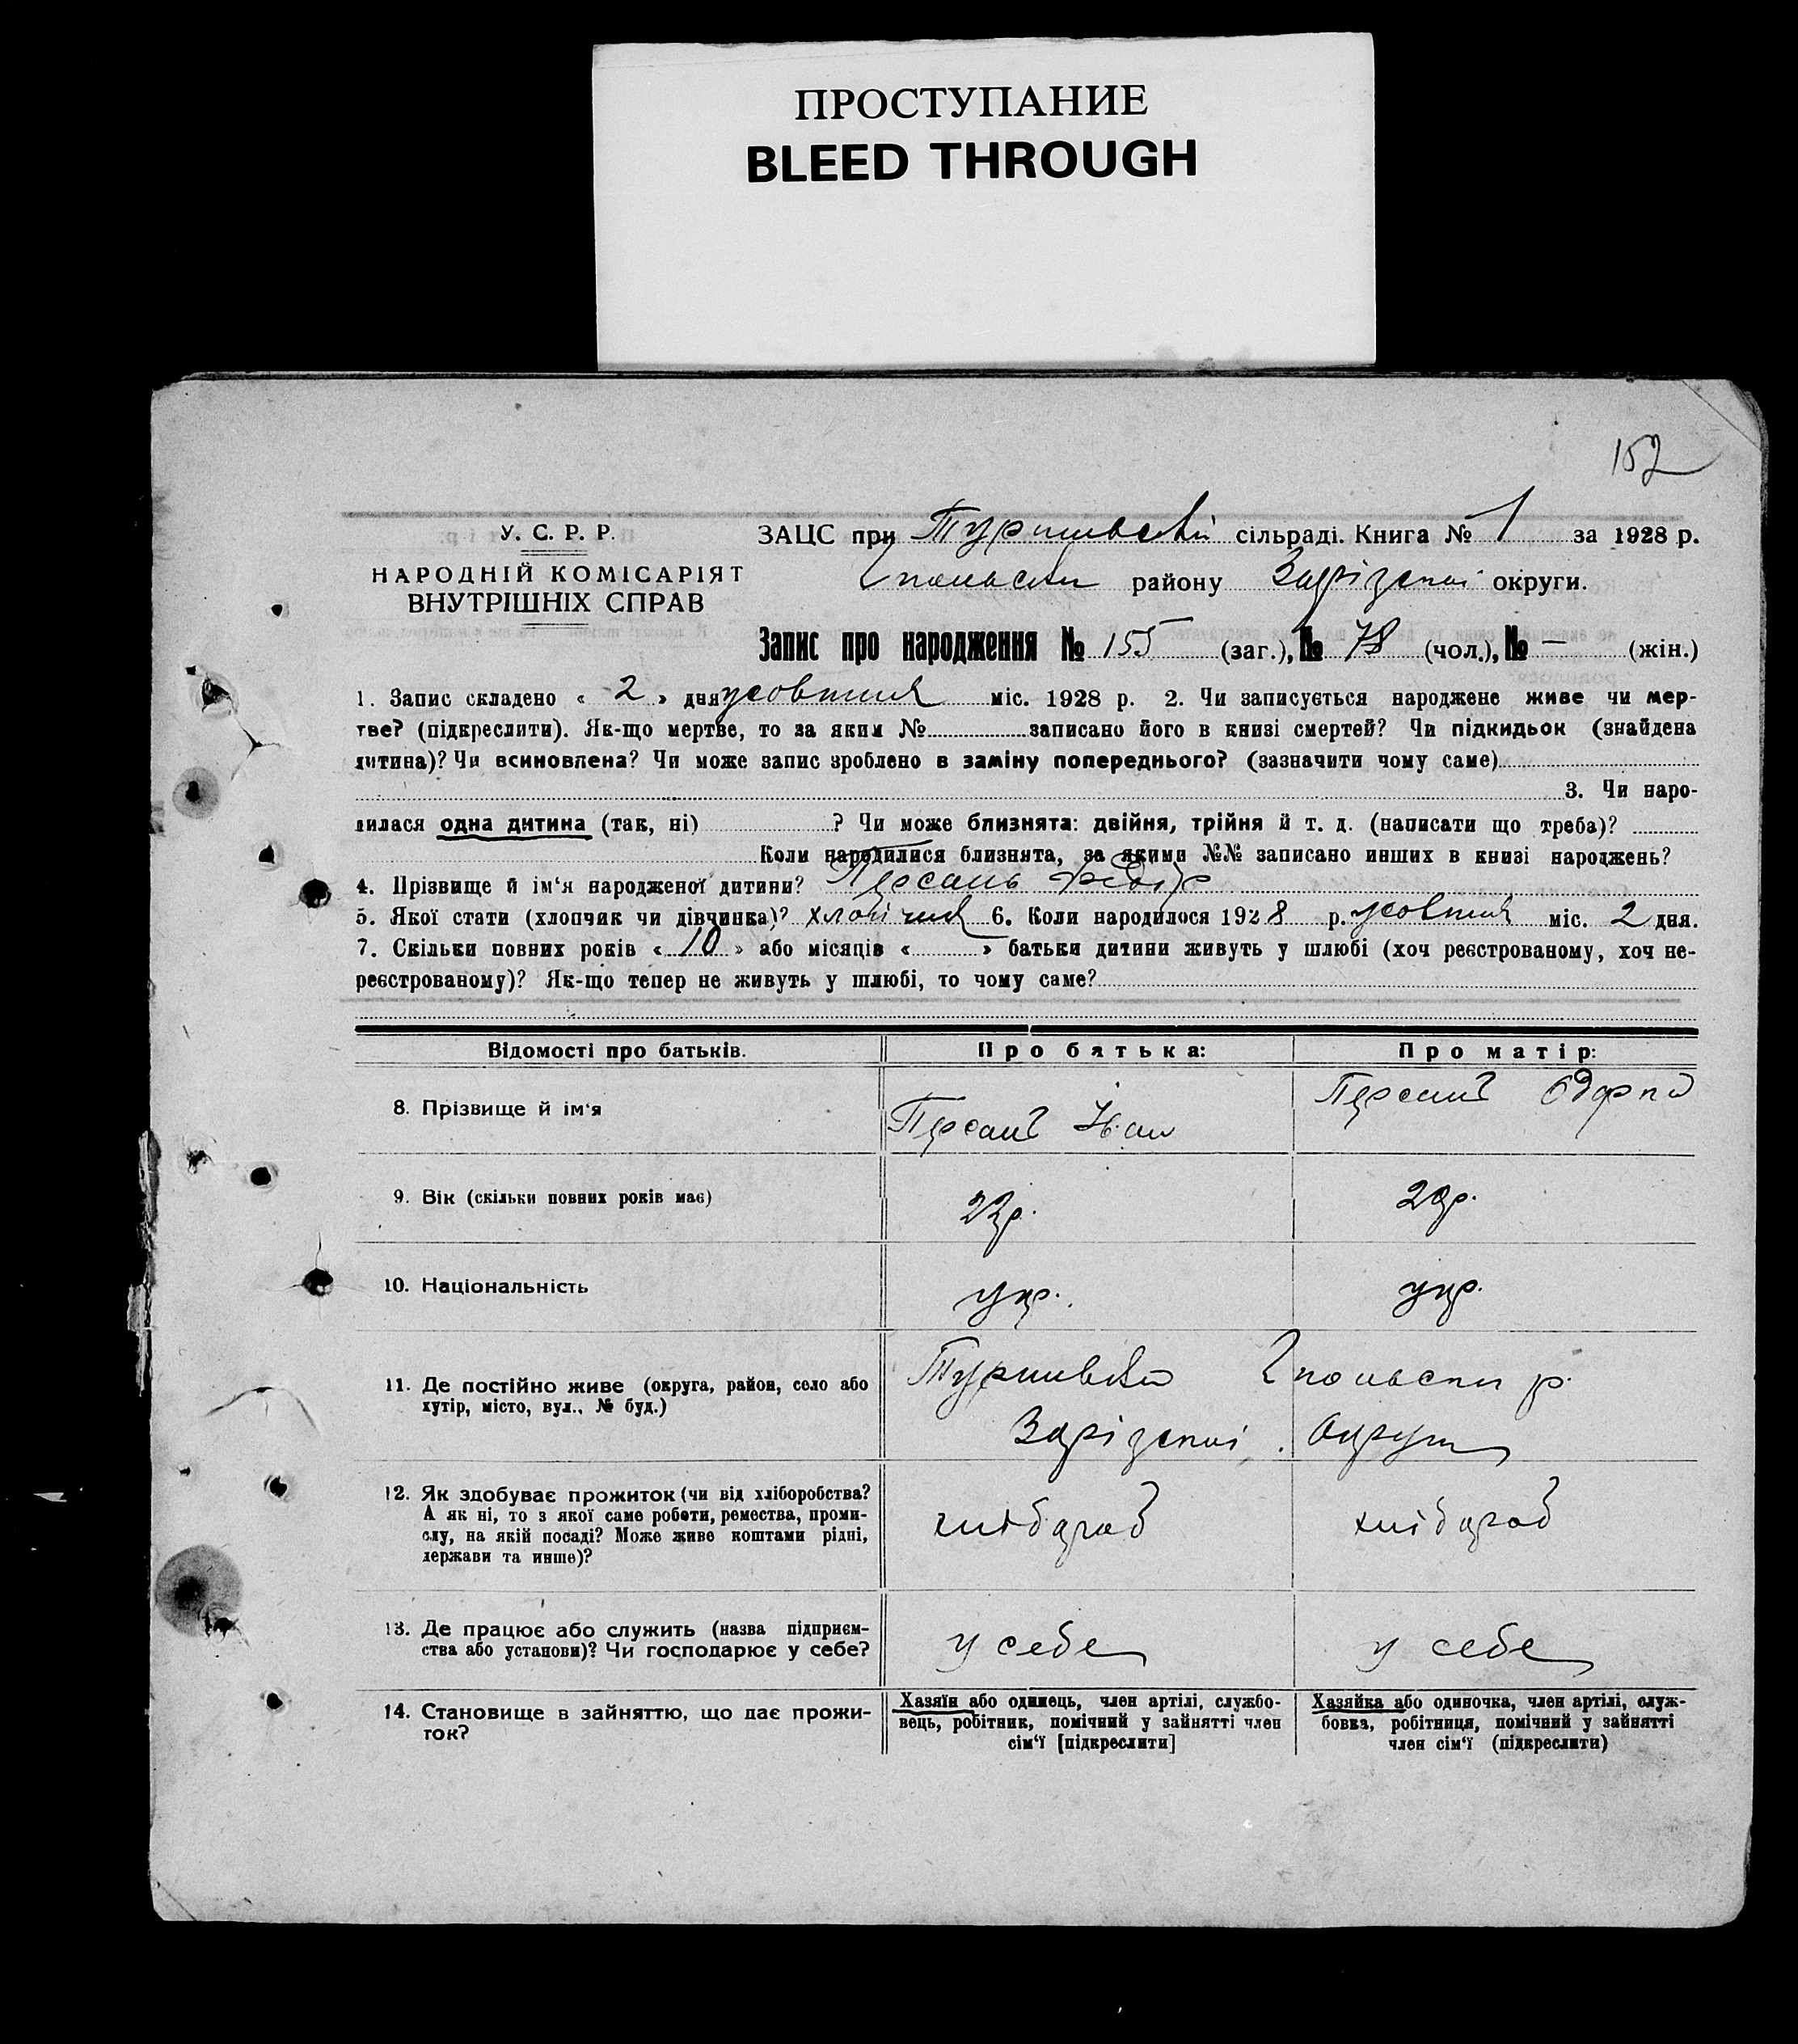 ПРОСТУПАНИЕ
BLEED THROUGH
152
У. С. Р. Р.
НАРОДНІЙ КОМІСАРІЯТ
ВНУТРІШНІХ СПРАВ
ЗАЦС при сільраді. Книга № 1 за 1928 р.
району округи.
Запис про народження № 155 (заг.), № 78 (чол.), № — (жін.)
1. Запис складено « 2 » дня жовтня міс. 1928 р. 2. Чи записується народжене живе чи мер-
тве? (підкреслити). Як-що мертве, то за яким № записано його в книзі смертей? Чи підкидьок (знайдена
дитина)? Чи всиновлена? Чи може запис зроблено в заміну попереднього? (зазначити чому саме)
3. Чи наро-
дилася одна дитина (так, ні) ? Чи може близнята: двійня, трійня й т. д. (написати що треба)?
Коли народилися близнята, за якими №№ записано инших в книзі народжень?
4. Прізвище й ім‘я народженої дитини? Федір
5. Якої стати (хлопчяк чи дівчинка)? 6. Коли народилося 1928 р. жовтня міс. 2 дня.
7. Скільки повних років « 10 » або місяців « » батьки дитини живуть у шлюбі (хоч реєстрованому, хоч не-
реєстрованому)? Як-що тепер не живуть у шлюбі, то чому саме?
Відомості про батьків. Про батька: Про матір:
8. Прізвище й ім‘я Іван
9. Вік (скільки повних років має)
10. Національність укр. укр.
11. Де постійно живе (округа, район, село або
хутір, місто, вул., № буд.)
округи
12. Як здобуває прожиток (чи від хліборобства?
А як ні, то з якої саме роботи, ремества, проми-
слу, на якій посаді? Може живе коштами рідні,
держави та инше)?
хлібороб хлібороб
13. Де працює або служить (назва підприєм-
ства або установи)? Чи господарює у себе?
у себе у себе
14. Становище в зайняттю, що дає прожи-
ток?
Хазяїн або одинець, член артілі, службо-
вець, робітник, помічний у зайнятті член
сім‘ї [підкреслити]
Хазяйка або одиночка, член артілі, служ-
бовка, робітниця, помічний у зайнятті
член сім‘ї (підкреслити)